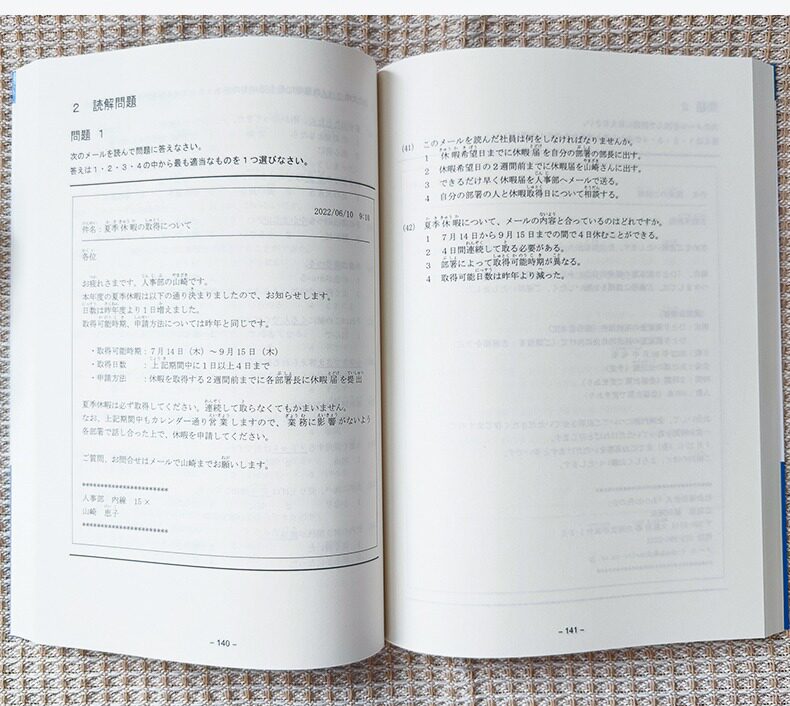 2 読解問題
問題 1
次のメールを読んで問題に答えなさい。
答えは1・2・3・4の中から最も適当なものを1つ選びなさい。
2022/06/10 9:10
件名：夏季休暇の取得について
各位
お疲れさまです。人事部の山崎です。
本年度の夏季休暇は以下の通り決まりましたので、お知らせします。
日数は昨年度より1日増えました。
取得可能時期、申請方法については昨年と同じです。
・取得可能時期：7月14日（木）～9月15日（木）
・取得日数　：上記期間中に1日以上4日まで
・申請方法　：休暇を取得する2週間前までに各部署長に休暇届を提出
夏季休暇は必ず取得してください。連続して取らなくてもかまいません。
なお、上記期間中もカレンダー通り営業しますので、業務に影響がないよう
各部署で話し合った上で、休暇を申請してください。
ご質問、お問合せはメールで山崎までお願いします。
********************
人事部　内線　15×
山崎　恵子
********************
－140－
(41) このメールを読んだ社員は何をしなければなりませんか。
1 休暇希望日までに休暇届を自分の部署の部長に出す。
2 休暇希望日の2週間前までに休暇届を山崎さんに出す。
3 できるだけ早く休暇届を人事部へメールで送る。
4 自分の部署の人と休暇取得日について相談する。
(42) 夏季休暇について、メールの内容と合っているのはどれですか。
1 7月14日から9月15日までの間で4日休むことができる。
2 4日間連続して取る必要がある。
3 部署によって取得可能時期が異なる。
4 取得可能日数は昨年より減った。
－141－